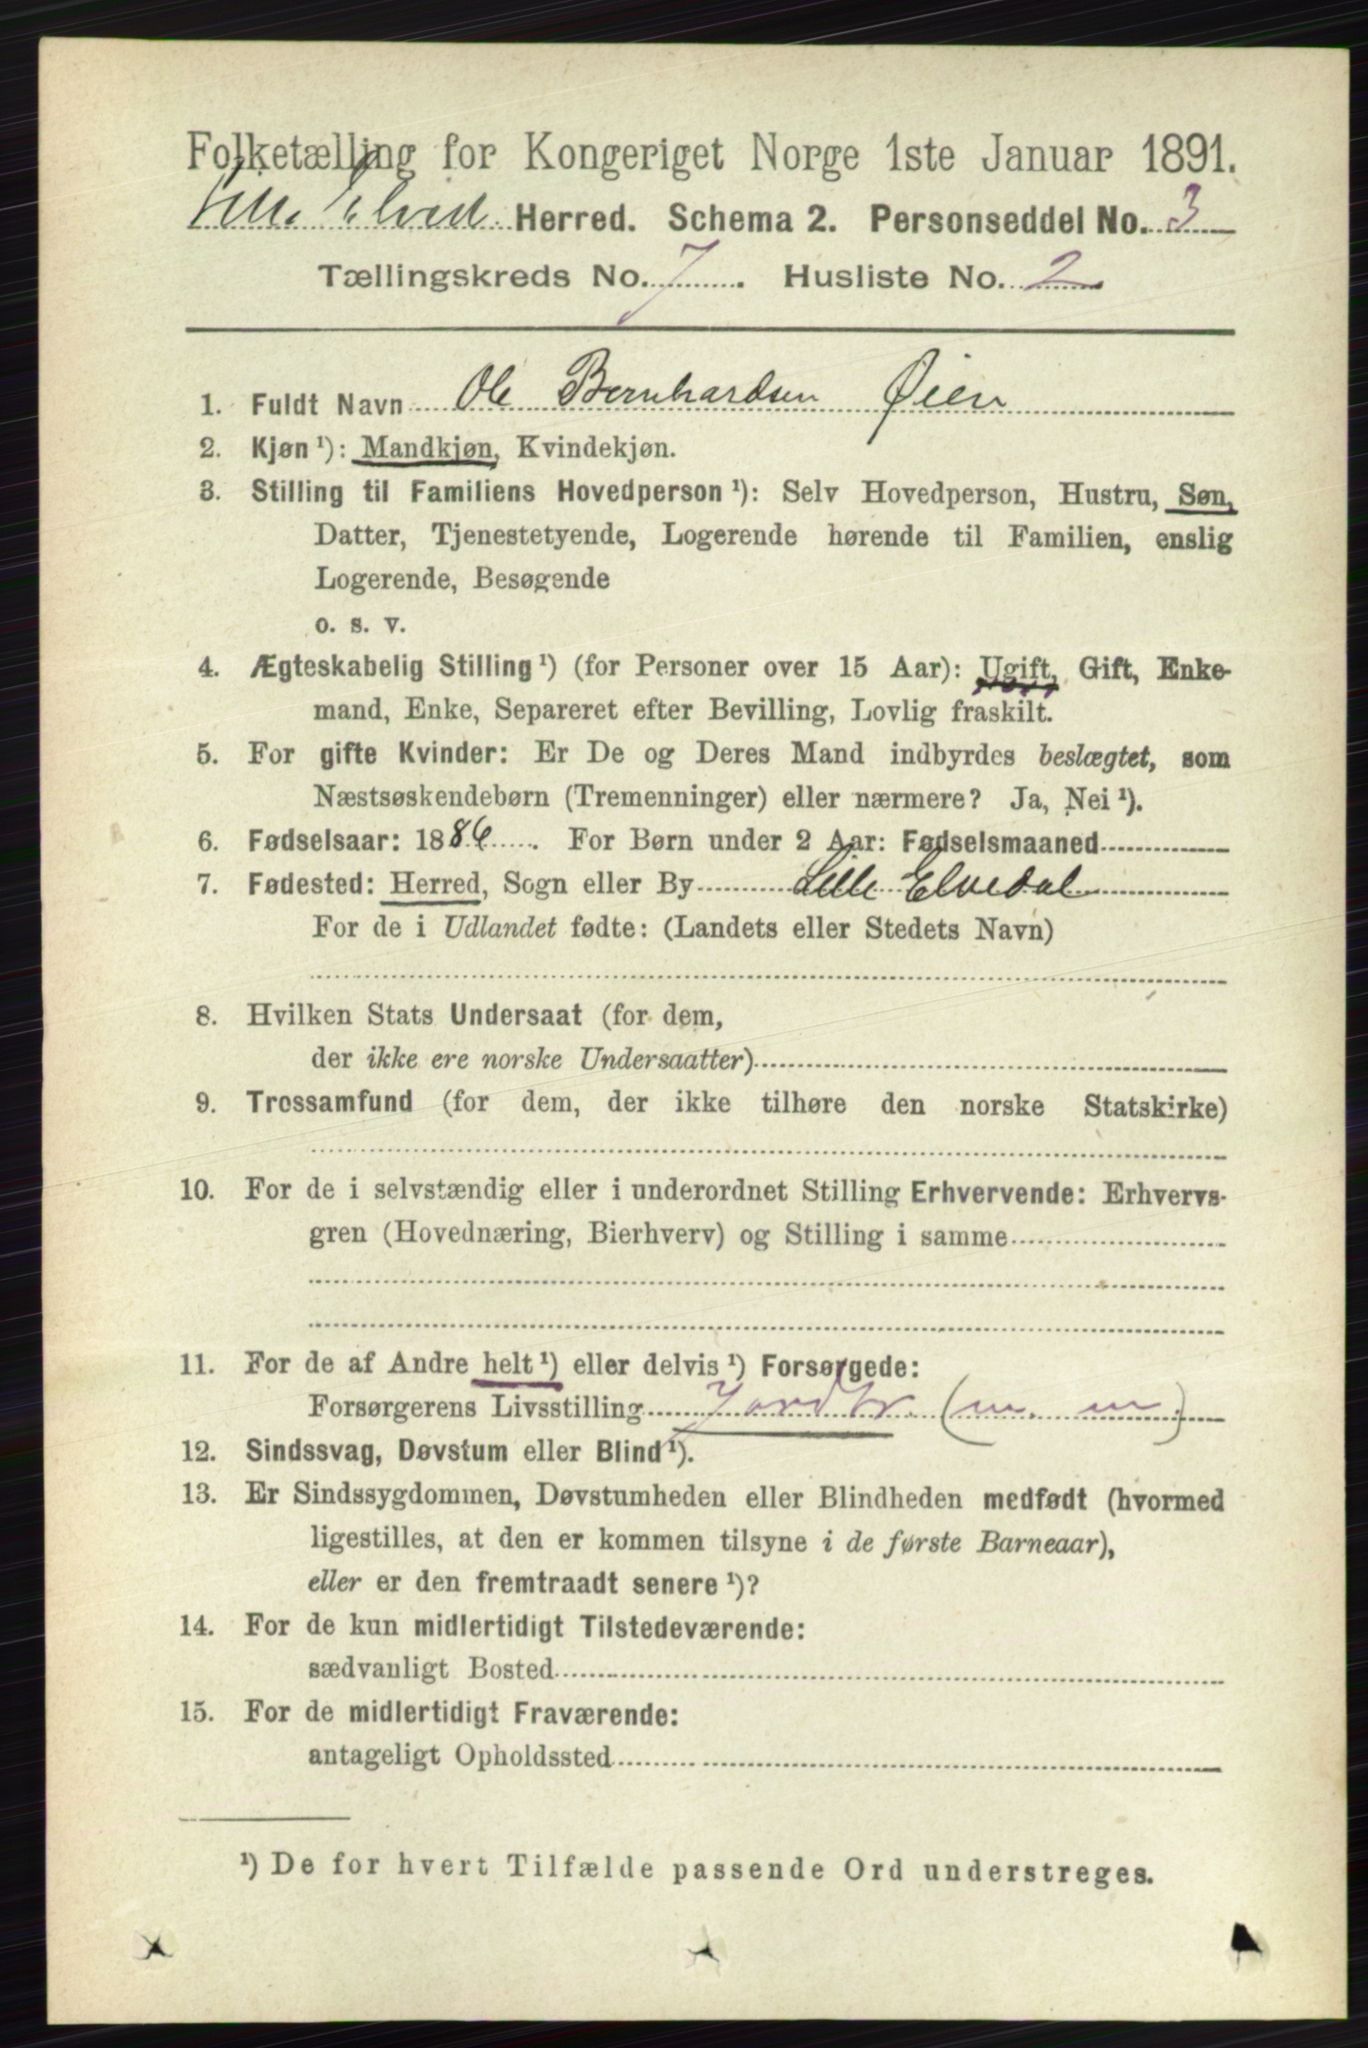 Folketælling for Kongeriget Norge 1ste Januar 1891.
Lille Elved. Herred. Schema 2. Personseddel No. 3
Tællingskreds No. 7. Husliste No. 2
1. Fuldt Navn Ole Bernhardsen Øien
2. Kjøn¹): Mandkjøn, Kvindekjøn.
3. Stilling til Familiens Hovedperson¹): Selv Hovedperson, Hustru, Søn,
Datter, Tjenestetyende, Logerende hørende til Familien, enslig
Logerende, Besøgende
o. s. v.
4. Ægteskabelig Stilling¹) (for Personer over 15 Aar): Ugift, Gift, Enke-
mand, Enke, Separeret efter Bevilling, Lovlig fraskilt.
5. For gifte Kvinder: Er De og Deres Mand indbyrdes beslægtet, som
Næstsøskendebørn (Tremenninger) eller nærmere? Ja, Nei¹).
6. Fødselsaar: 1886. For Børn under 2 Aar: Fødselsmaaned
7. Fødested: Herred, Sogn eller By Lille Elvedal
For de i Udlandet fødte: (Landets eller Stedets Navn)
8. Hvilken Stats Undersaat (for dem,
der ikke ere norske Undersaatter)
9. Trossamfund (for dem, der ikke tilhøre den norske Statskirke)
10. For de i selvstændig eller i underordnet Stilling Erhvervende: Erhvervs-
gren (Hovednæring, Bierhverv) og Stilling i samme
11. For de af Andre helt¹) eller delvis¹) Forsørgede:
Forsørgerens Livsstilling Jordbr. (m. m.)
12. Sindssvag, Døvstum eller Blind¹).
13. Er Sindssygdommen, Døvstumheden eller Blindheden medfødt (hvormed
ligestilles, at den er kommen tilsyne i de første Barneaar),
eller er den fremtraadt senere¹)?
14. For de kun midlertidigt Tilstedeværende:
sædvanligt Bosted
15. For de midlertidigt Fraværende:
antageligt Opholdssted
¹) De for hvert Tilfælde passende Ord understreges.